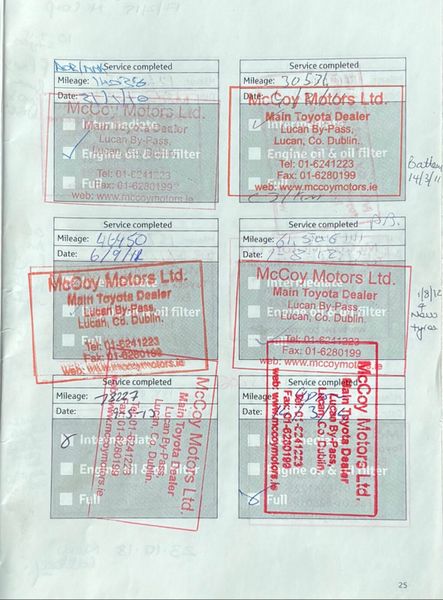 Service completed
Mileage:
Date:
McCoy Motors Ltd.
Main Toyota Dealer
Lucan By-Pass,
Lucan, Co. Dublin.
Tel: 01-6241223
Fax: 01-6280199
web: www.mccoymotors.ie
Intermediate
Engine oil & oil filter
Full
Service completed
Mileage: 30536
Date:
McCoy Motors Ltd.
Main Toyota Dealer
Lucan By-Pass,
Lucan, Co. Dublin.
Tel: 01-6241223
Fax: 01-6280199
web: www.mccoymotors.ie
Intermediate
Engine oil & oil filter
Full
14/3/11
Service completed
Mileage: 46450
Date: 6/9/11
McCoy Motors Ltd.
Main Toyota Dealer
Lucan By-Pass,
Lucan, Co. Dublin.
Tel: 01-6241223
Fax: 01-6280199
web: www.mccoymotors.ie
Service completed
Mileage:
Date:
McCoy Motors Ltd.
Main Toyota Dealer
Lucan By-Pass,
Lucan, Co. Dublin.
Tel: 01-6241223
Fax: 01-6280199
web: www.mccoymotors.ie
1/8/12
4
New
tyres
Service completed
Mileage: 78227
Date:
Intermediate
Engine oil & oil filter
Full
McCoy Motors Ltd.
Main Toyota Dealer
Lucan By-Pass,
Lucan, Co. Dublin.
Tel: 01-6241223
Fax: 01-6280199
web: www.mccoymotors.ie
Service completed
Mileage:
Date:
Intermediate
Engine oil & oil filter
Full
McCoy Motors Ltd.
Main Toyota Dealer
Lucan By-Pass,
Lucan, Co. Dublin.
Tel: 01-6241223
Fax: 01-6280199
web: www.mccoymotors.ie
25